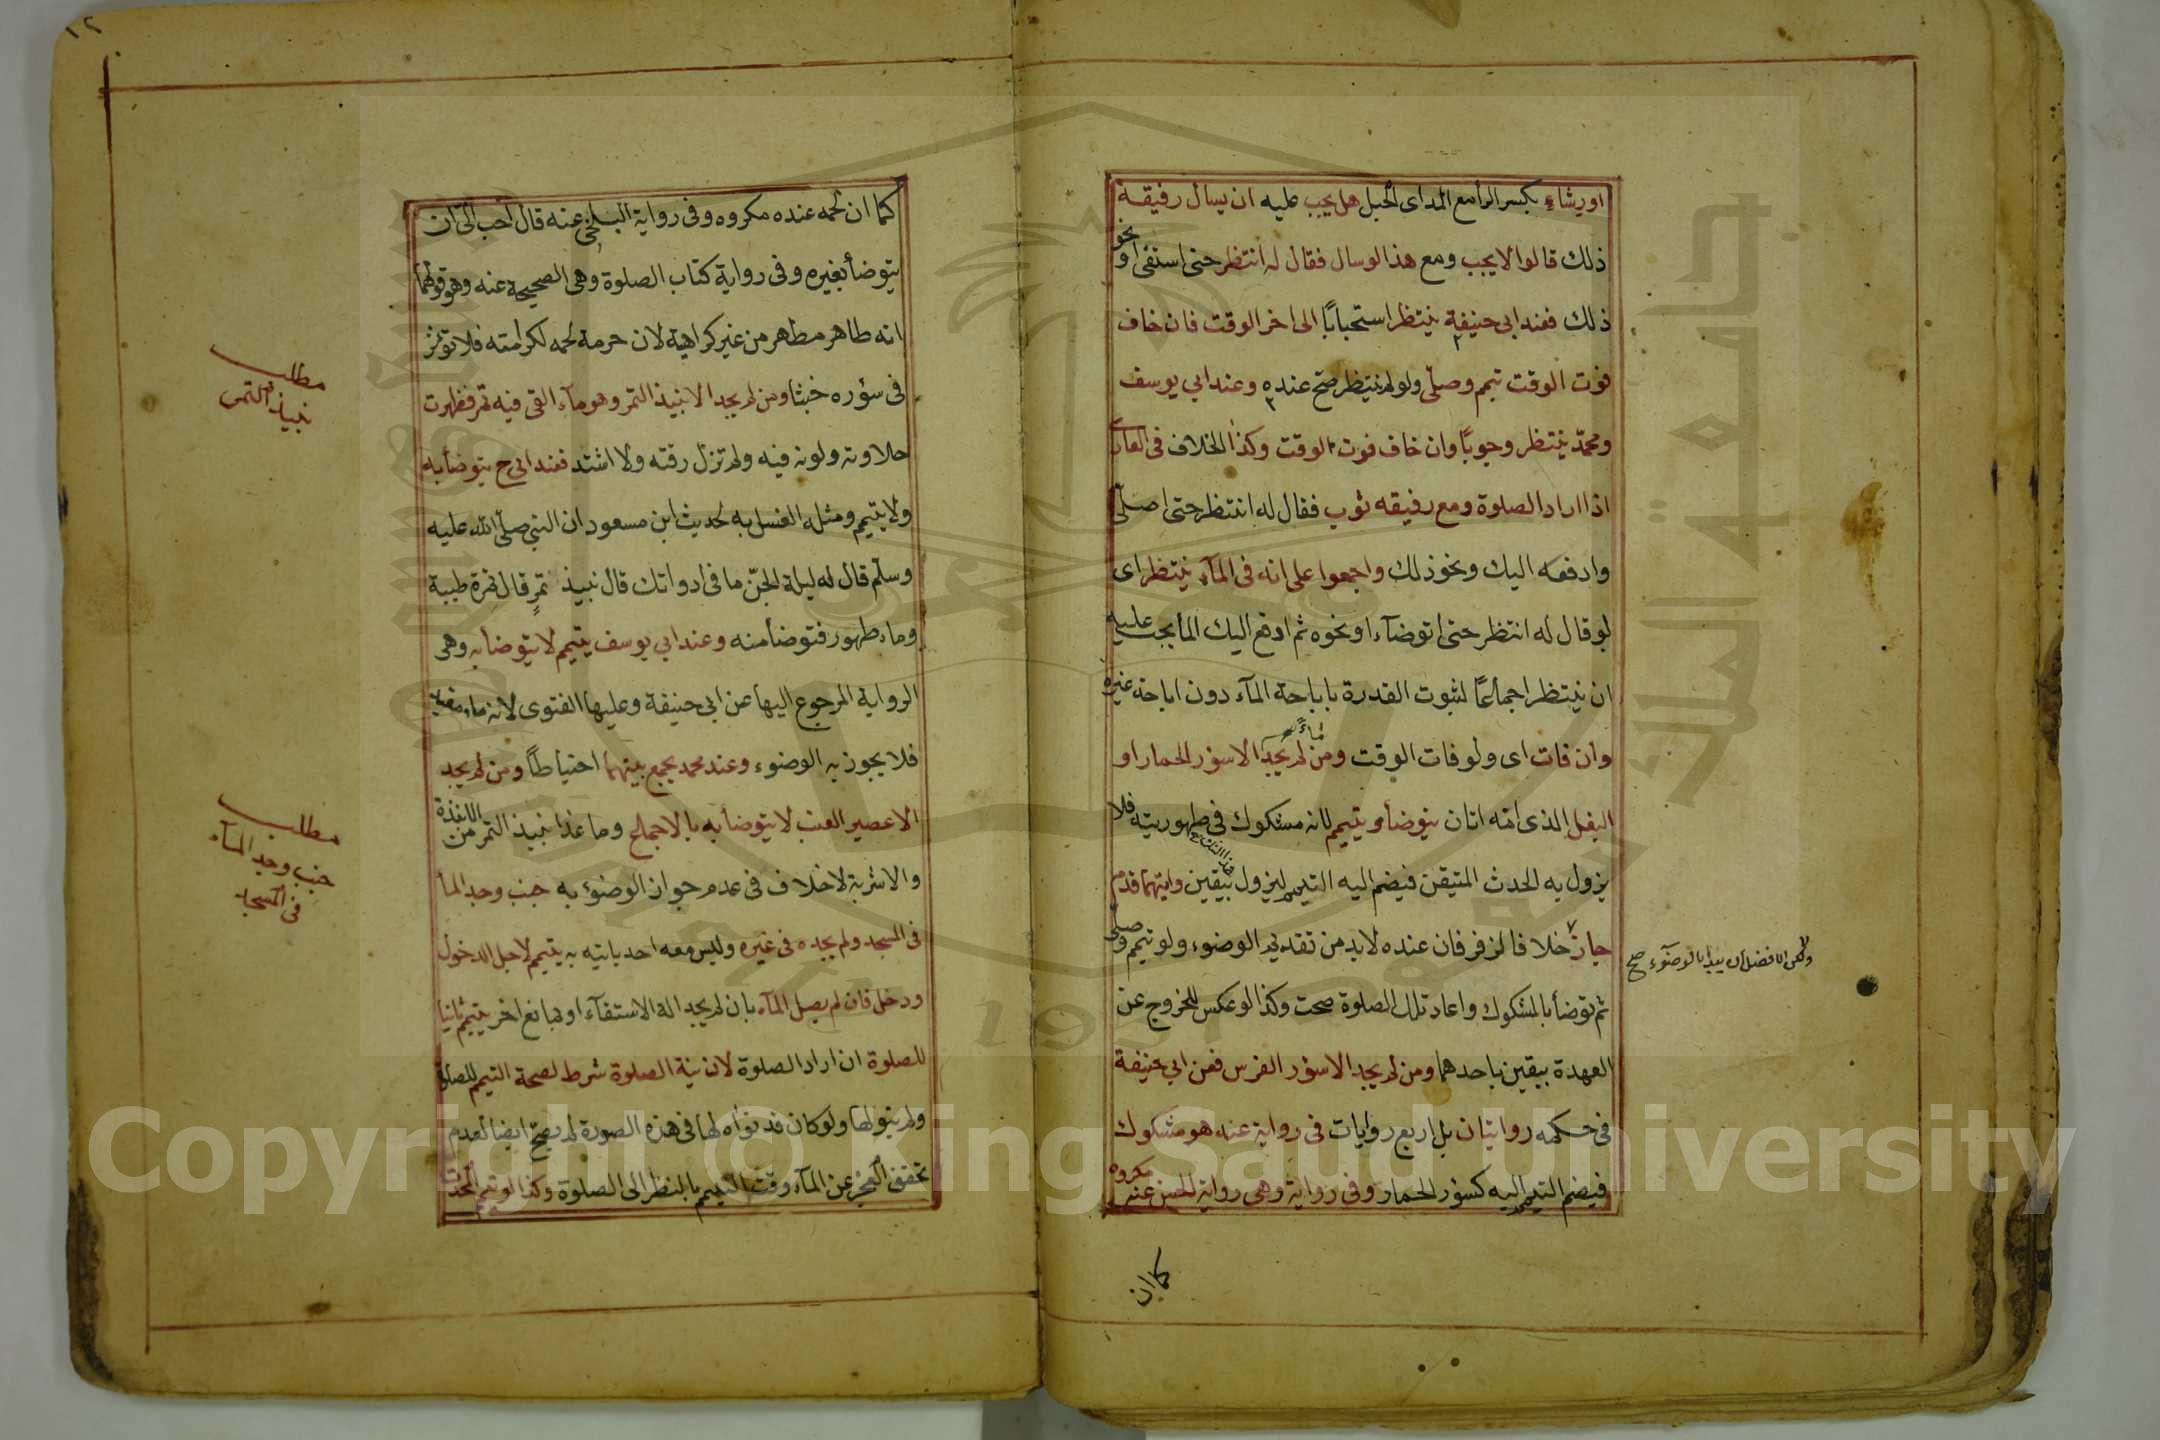 او رشاء بكسر الرا مع المد اى الحبل هل يجب عليه ان يسال رفيقه
ذلك قالوا لا يجب ومع هذا لو سال فقال له انتظر حتى استقى او نحو
ذلك فعند ابى حنيفة ينتظر استحبابا الى اخر الوقت فان خاف
فوت الوقت تيمم وصلى ولو لم ينتظر صح عنده وعند ابي يوسف
ومحمد ينتظر وجوبا وان خاف فوت الوقت وكذا الخلاف فى العارى
اذا اراد الصلوة ومع رفيقه ثوب فقال له انتظر حتى اصلى
وادفعه اليك ونحو ذلك واجمعوا على انه فى المآء ينتظر اى
لو قال له انتظر حتى اتوضآء او نحوه ثم ادفع اليك المأ يجب عليه
ان ينتظر اجماعا لثبوت القدرة باباحة المآء دون اباحة غيره
وان فات اى ولو فات الوقت ومن لم يجد ماء الا سؤر الحمار او
البغل الذى امه اتان يتوضأ ويتيمم لانه مشكوك فى طهوريته فلا
يزول به الحدث المتيقن فيضم اليه التيمم ليزول بيقين وايتهما قدم
جاز خلافا لزفر فان عنده لا بد من تقديم الوضوء ولو تيمم وصلى
ولكن الافضل ان يبدا بالوضوء صح
ثم توضأ بالمشكوك واعاد تلك الصلوة صحت وكذا لو عكس للخروج عن
العهدة بيقين باحدهما ومن لم يجد الا سؤر الفرس فعن ابي حنيفة
فى حكمه روايتان بل اربع روايات فى رواية عنه هو مشكوك
فيضم التيمم اليه كسؤر الحمار وفى رواية وهى رواية الحسن عنه مكروه
كما ان
١٢
كما ان لحمه عنده مكروه وفى رواية البلخى عنه قال احب الى ان
يتوضأ بغيره وفى رواية كتاب الصلوة وهى الصحيحة عنه وهو قولهما
انه طاهر مطهر من غير كراهية لان حرمة لحمه لكرامته فلا تؤثر
فى سؤره خبثا ومن لم يجد الا نبيذ التمر وهو مآء القى فيه تمر فظهرت
حلاوته ولونه فيه ولم تزل رقته ولا اشتد فعند ابى ح يتوضأ به
ولا يتيمم ومثله الغسل به لحديث ابن مسعود ان النبى صلى الله عليه
وسلم قال له ليلة الجن ما فى ادواتك قال نبيذ تمر قال تمرة طيبة
وماء طهور فتوضأ منه وعند ابي يوسف يتيمم لا يتوضأ به وهى
الرواية المرجوع اليها عن ابي حنيفة وعليها الفتوى لانه ماء مقيد
فلا يجوز به الوضوء وعند محمد يجمع بينهما احتياطا ومن لم يجد
الا عصير العنب لا يتوضأ به بالاجماع وما عدا نبيذ التمر من الانبذة
والاشربة لا خلاف فى عدم جواز الوضوء به جنب وجد المأ
فى المسجد ولم يجده فى غيره وليس معه احد ياتيه به يتيمم لاجل الدخول
ودخل فان لم يصل المآء بان لم يجد الة الاستقآء او لمانع اخر يتيمم ثانيا
للصلوة ان اراد الصلوة لان نية الصلوة شرط لصحة التيمم للصلوة
ولم ينو لها ولو كان قد نواه لها فى هذه الصورة لم يصح ايضا لعدم
تحقق العجز عن المآء وقت التيمم بالنظر الى الصلوة وكذا لو تيمم المحدث
مطلب
نبيذ التمر
مطلب
جنب وجد المآء
فى المسجد
Copyright © King Saud University